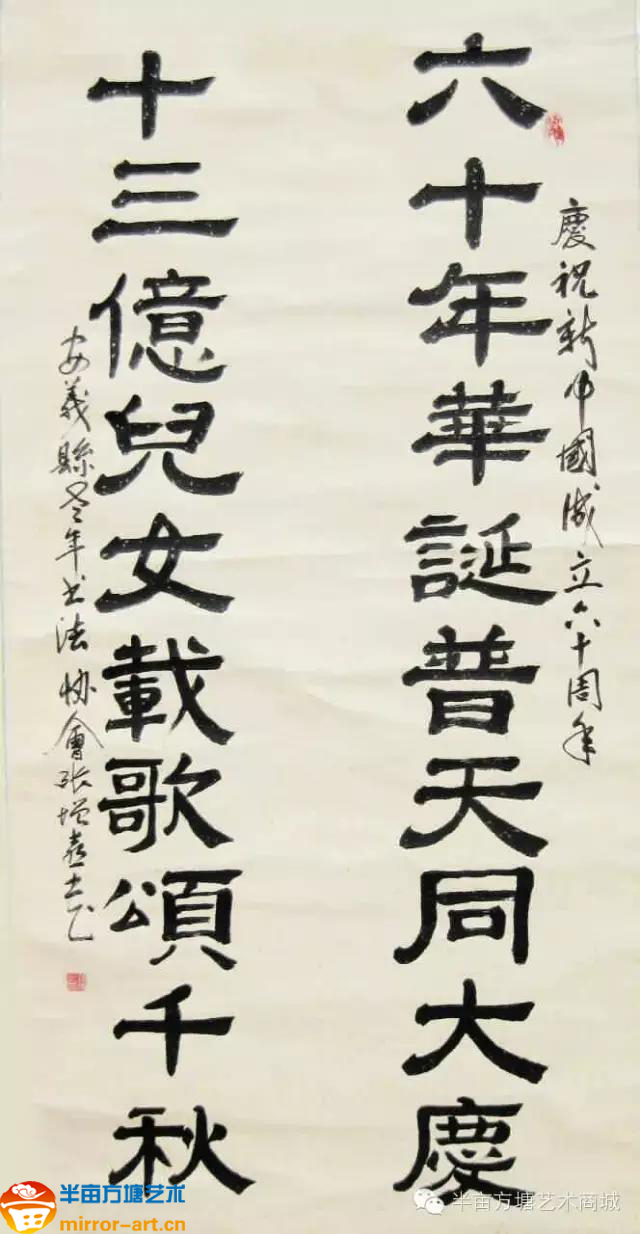 慶祝新中國成立六十周年
六十年華誕普天同大慶
十三億兒女載歌頌千秋
安義縣老年书法协會张增喜书
半亩方塘艺术
mirror-art.cn
半亩方塘艺术商城